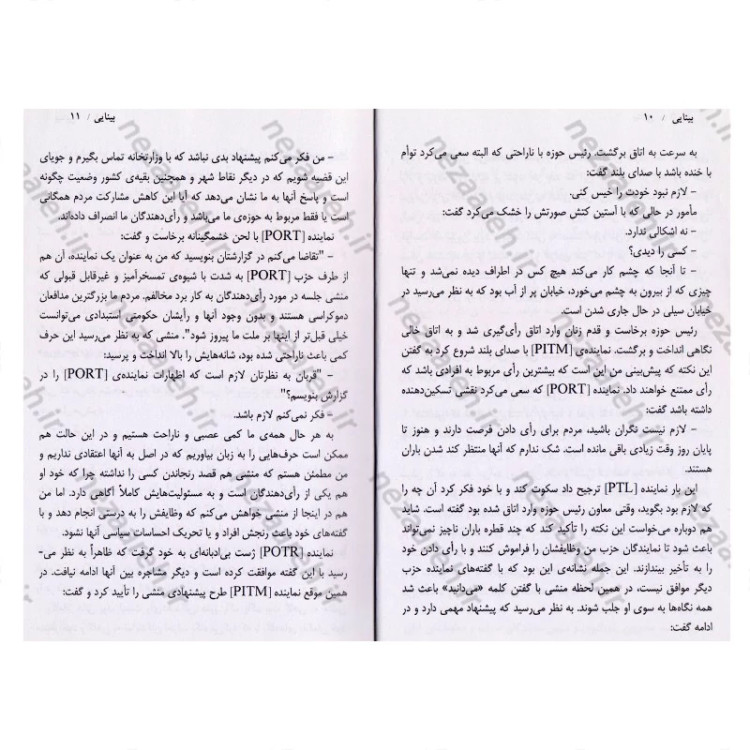 بینایی / ۱۰
به سرعت به اتاق برگشت. رئیس حوزه با ناراحتی که البته سعی می‌کرد توأم
با خنده باشد با صدای بلند گفت:
– لازم نبود خودت را خیس کنی.
مأمور در حالی که با آستین کتش صورتش را خشک می‌کرد گفت:
– نه اشکالی ندارد.
– کسی را دیدی؟
– تا آنجا که چشم کار می‌کند هیچ کس در اطراف دیده نمی‌شد و تنها
چیزی که از بیرون به چشم می‌خورد، خیابان پر از آب بود که به نظر می‌رسید در
خیابان سیلی در حال جاری شدن است.
رئیس حوزه برخاست و قدم زنان وارد اتاق رأی‌گیری شد و به اتاق خالی
نگاهی انداخت و برگشت. نماینده‌ی [PITM] با صدای بلند شروع کرد به گفتن
این نکته که پیش‌بینی من این است که بیشترین رأی مربوط به افرادی باشد که
رأی ممتنع خواهند داد. نماینده [PORT] که سعی می‌کرد نقشی تسکین‌دهنده
داشته باشد گفت:
– لازم نیست نگران باشید، مردم برای رأی دادن فرصت دارند و هنوز تا
پایان روز وقت زیادی باقی مانده است. شک ندارم که آنها منتظر کند شدن باران
هستند.
این بار نماینده [PTL] ترجیح داد سکوت کند و با خود فکر کرد آن چه را
که لازم بود بگوید، وقتی معاون رئیس حوزه وارد اتاق شده بود گفته است. شاید
هم دوباره می‌خواست این نکته را تأکید کند که چند قطره باران ناچیز نمی‌تواند
باعث شود تا نمایندگان حزب من وظایفشان را فراموش کنند و با رأی دادن خود
را به تأخیر بیندازند. این جمله نشانه‌ی این بود که با گفته‌های نماینده حزب
دیگر موافق نیست، در همین لحظه منشی با گفتن کلمه «می‌دانید» باعث شد
همه نگاه‌ها به سوی او جلب شوند. به نظر می‌رسید که پیشنهاد مهمی دارد و در
ادامه گفت:
بینایی / ۱۱
– من فکر می‌کنم پیشنهاد بدی نباشد که با وزارتخانه تماس بگیرم و جویای
این قضیه شویم که در دیگر نقاط شهر و همچنین بقیه‌ی کشور وضعیت چگونه
است و پاسخ آنها به ما نشان می‌دهد که آیا این کاهش مشارکت مردم همگانی
است یا فقط مربوط به حوزه‌ی ما می‌باشد و رأی‌دهندگان ما انصراف داده‌اند.
نماینده [PORT] با لحن خشمگینانه برخاست و گفت:
– "تقاضا می‌کنم در گزارشتان بنویسید که من به عنوان یک نماینده، آن هم
از طرف حزب [PORT] به شدت با شیوه‌ی تمسخرآمیز و غیرقابل قبولی که
منشی جلسه در مورد رأی‌دهندگان به کار برد مخالفم. مردم ما بزرگترین مدافعان
دموکراسی هستند و بدون وجود آنها و رأیشان حکومتی استبدادی می‌توانست
خیلی قبل‌تر از اینها بر ملت ما پیروز شود". منشی که به نظر می‌رسید این حرف
کمی باعث ناراحتی شده بود، شانه‌هایش را بالا انداخت و پرسید:
– "قربان به نظرتان لازم است که اظهارات نماینده‌ی [PORT] را در
گزارش بنویسم؟"
– فکر نمی‌کنم لازم باشد.
به هر حال همه‌ی ما کمی عصبی و ناراحت هستیم و در این حالت هم
ممکن است حرف‌هایی را به زبان بیاوریم که در اصل به آنها اعتقادی نداریم و
من مطمئن هستم که منشی هم قصد رنجاندن کسی را نداشته چرا که خود او
هم یکی از رأی‌دهندگان است و به مسئولیت‌هایش کاملاً آگاهی دارد. اما من
هم در اینجا از منشی خواهش می‌کنم که وظایفش را به درستی انجام دهد و با
گفته‌های خود باعث رنجش افراد و یا تحریک احساسات سیاسی آنها نشود.
نماینده [POTR] ژست بی‌ادبانه‌ای به خود گرفت که ظاهراً به نظر می-
رسید با این گفته موافقت کرده است و دیگر مشاجره بین آنها ادامه نیافت. در
همین موقع نماینده [PITM] طرح پیشنهادی منشی را تأیید کرد و گفت:
nezaaaleh.ir